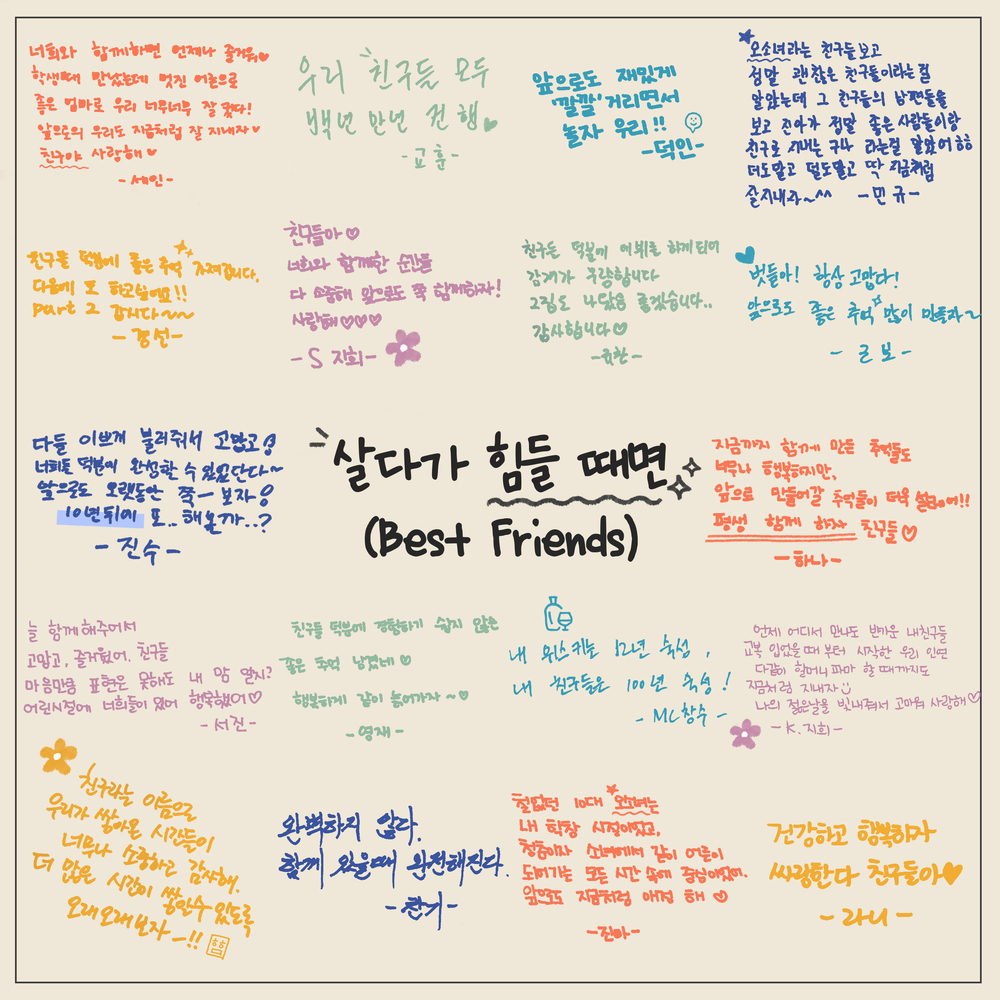 너희와 함께하면 언제나 즐거워♡
학생때 만났는데 멋진 어른으로
좋은 엄마로 우리 너무너무 잘 컸다!
앞으로의 우리도 지금처럼 잘 지내자♡
친구야 사랑해♡
-세인-
우리 친구들 모두
백년 만년 건행
-교훈-
앞으로도 재밌게
'깔깔' 거리면서
놀자 우리!!
-덕인-
오소녀라는 친구들 보고
정말 괜찮은 친구들이라는걸
알았는데 그 친구들의 남편들을
보고 진아가 정말 좋은 사람들이랑
친구로 지내는 구나 라는걸 알았어 ㅎㅎ
더도말고 덜도말고 딱 지금처럼
잘지내자~^^ -민규-
친구들 덕분에 좋은 추억 가져갑니다.
다음에 또 하고싶어요!!
part 2 갑시다~~
-경선-
친구들아♡
너희와 함께한 순간들
다 소중해 앞으로도 쭉 함께하자!
사랑해♡♡♡
-S 지희-
친구든 덕분에 데뷔를 하게 되어
감개가 무량합니다
2집도 나왔음 좋겠습니다..
감사합니다♡
벗들아! 항상 고맙다!
앞으로도 좋은 추억 많이 만들자~
-근보-
다들 이쁘게 불러줘서 고맙고!
너희들 덕분에 완성할 수 있었단다~
앞으로도 오랫동안 쭉- 보자!
10년뒤에 또.. 해볼까..?
-진수-
살다가 힘들 때면
(Best Friends)
지금까지 함께 만든 추억들도
너무나 행복하지만,
앞으로 만들어갈 추억들이 더욱 설레어!!
평생 함께 하자 친구들♡
-하나-
늘 함께해주어서
고맙고, 즐거웠어. 친구들
마음만큼 표현은 못해도 내 맘 알지?
어린시절에 너희들이 있어 행복했어♡
-서진-
친구들 덕분에 경험하기 쉽지 않은
좋은 추억 남겼네♡
행복하게 같이 늙어가자~♡
-영재-
내 위스키는 12년 숙성,
내 친구들은 100년 숙성!
-MC창수-
언제 어디서 만나도 반가운 내친구들
교복 입었을때 부터 시작한 우리 인연
다같이 할머니 파마 할 때까지도
지금처럼 지내자
나의 젊은날을 빛내줘서 고마워 사랑해♡
-K.지희-
친구라는 이름으로
우리가 쌓아온 시간들이
너무나 소중하고 감사해.
더 많은 시간이 쌓일수 있도록
오래오래보자-!!
완벽하지 않다.
함께 있을때 완전해진다.
-찬기-
철없던 10대 오소녀는
내 학창 시절이었고,
청춘이자 소녀에서 같이 어른이
되어가는 모든 시간 속에 중심이었어.
앞으로도 지금처럼 애정 해♡
-진아-
건강하고 행복하자
싸랑한다 친구들아♡
-라니-